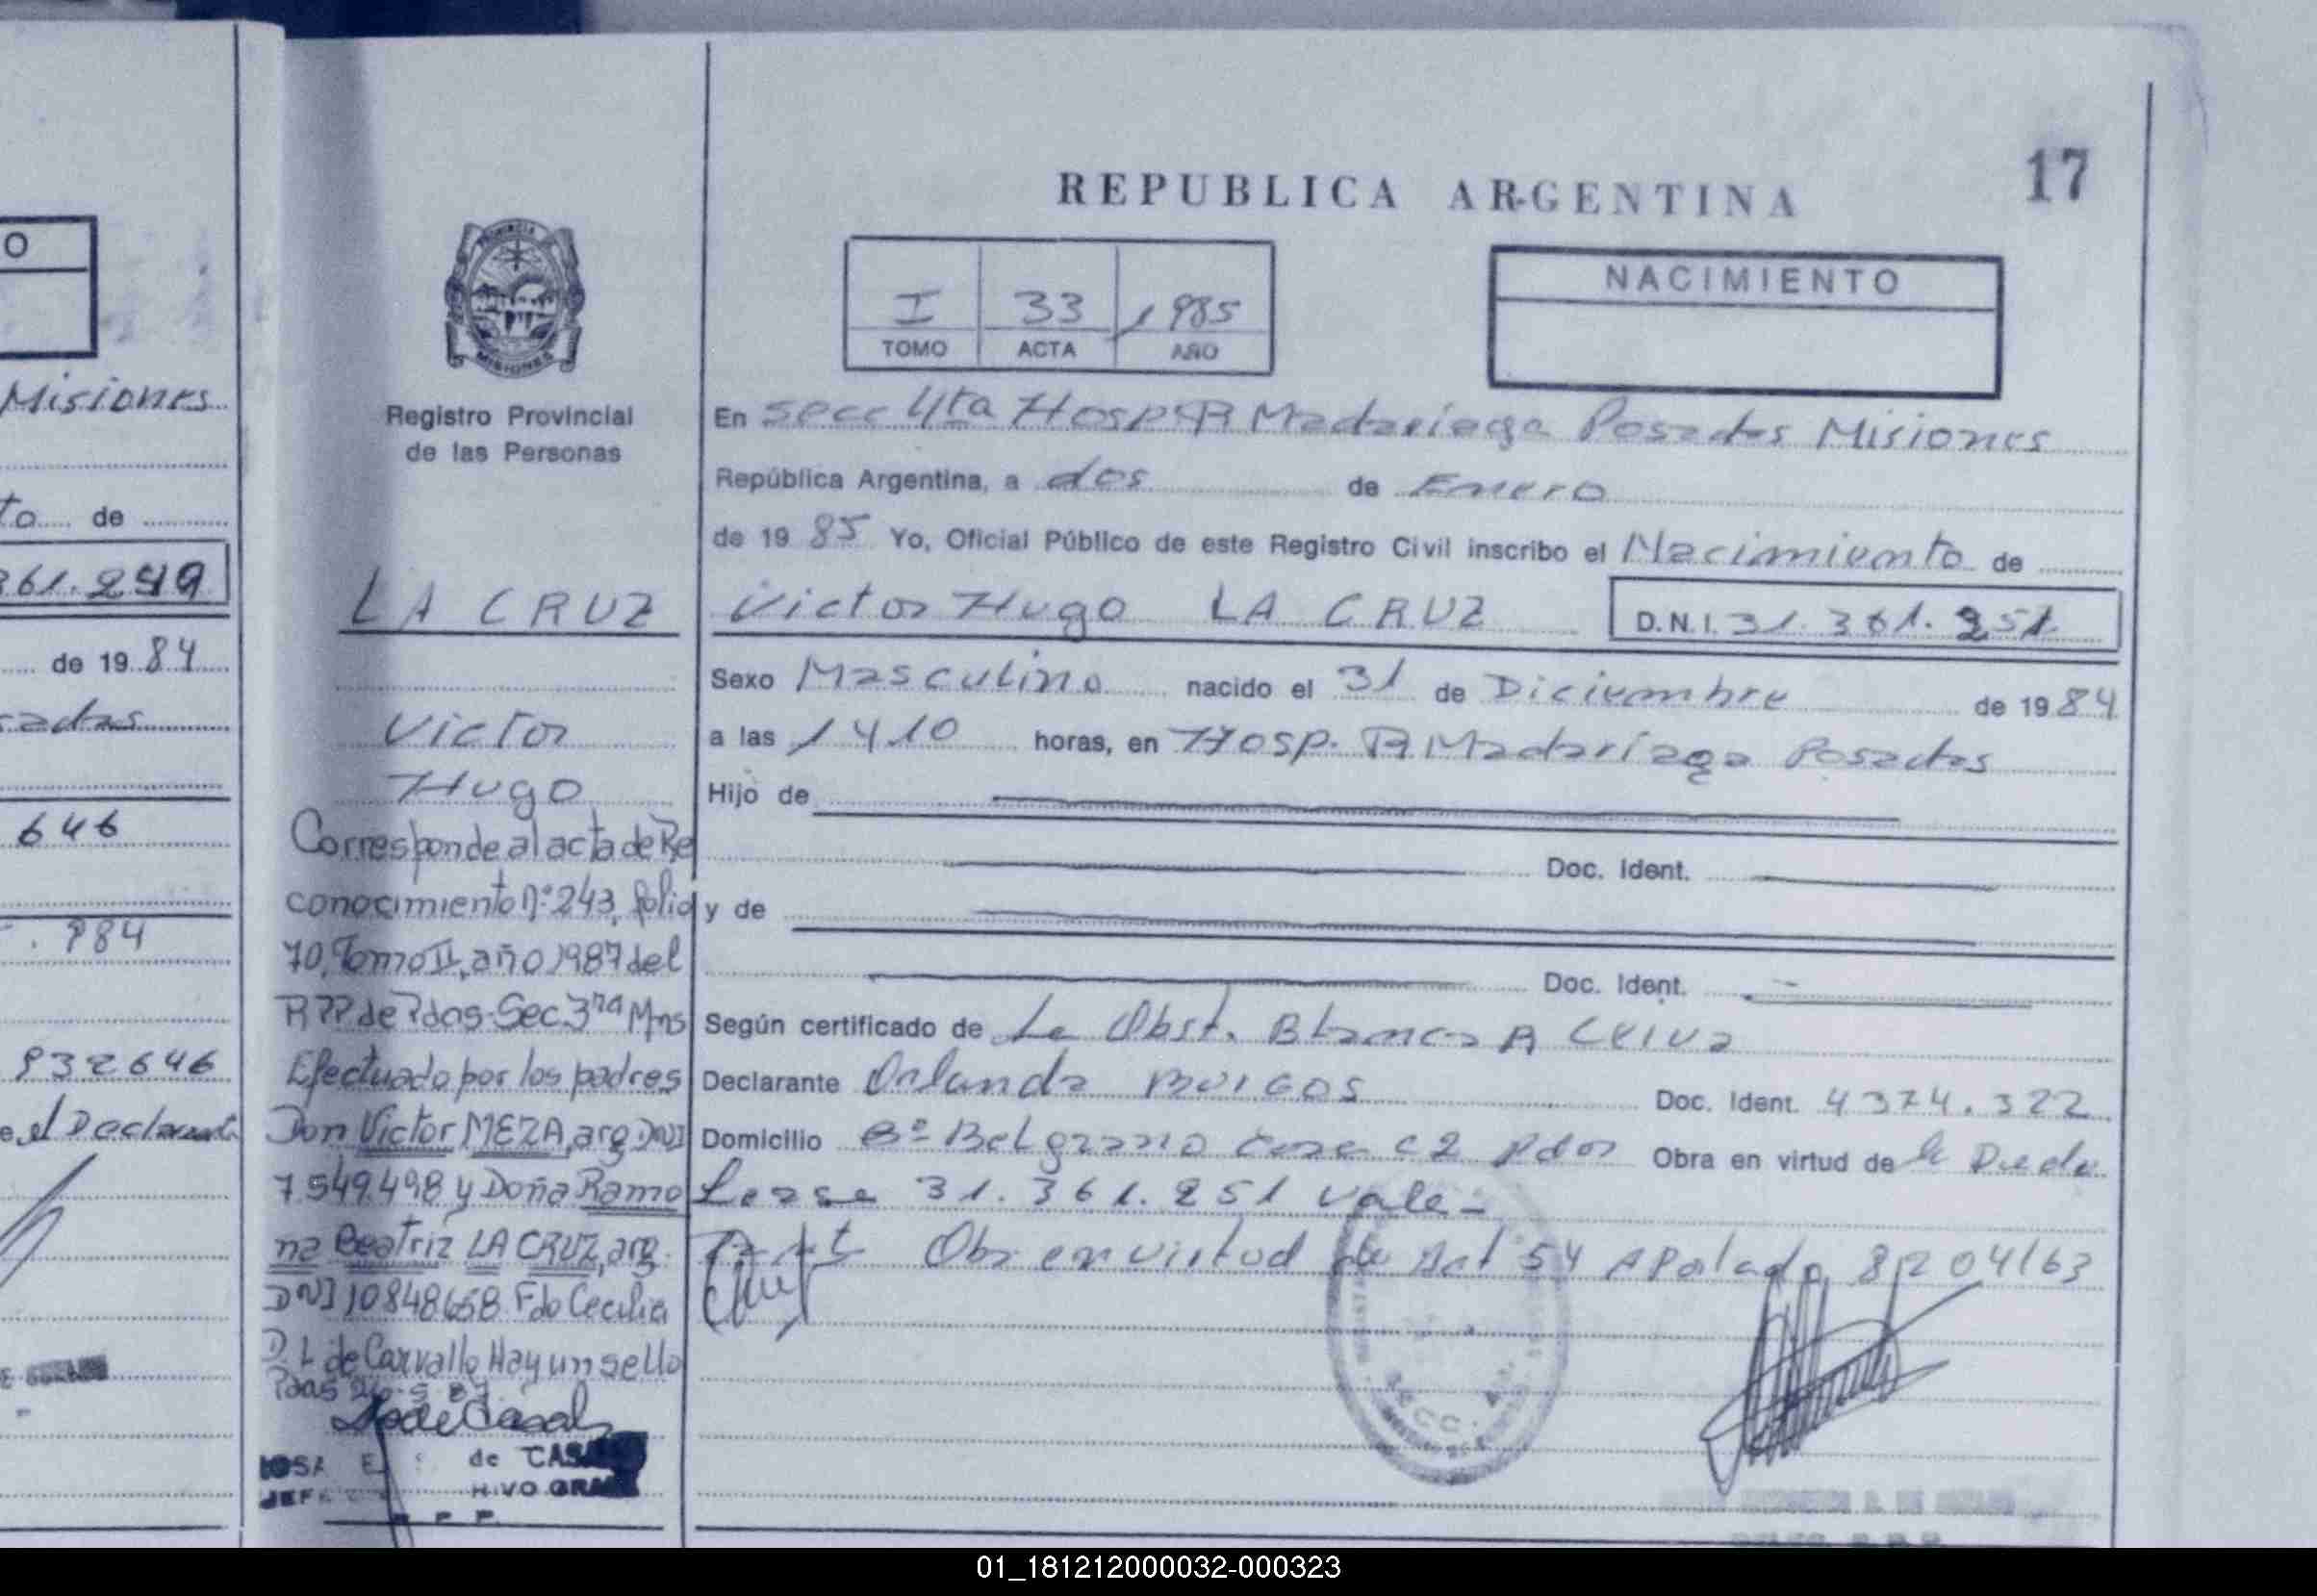 O
Misiones
to de
361.249
de 19 84
sadas
646
984
932646
el Declarant
17
REPUBLICA ARGENTINA
PROVINCIA
MISIONES
Registro Provincial
de las Personas
I 33 1985
TOMO ACTA AÑO
NACIMIENTO
En secc 4ta Hosp R Madariaga Posadas Misiones
República Argentina, a dos de Enero
de 19 85 Yo, Oficial Público de este Registro Civil inscribo el Nacimiento de
Victor Hugo LA CRUZ D.N.I. 31.361.251
Sexo Masculino nacido el 31 de Diciembre de 19 84
a las 1410 horas, en Hosp. R Madariaga Posadas
Hijo de
Doc. Ident.
y de
Doc. Ident.
Según certificado de La Obst. Blanca A Leiva
Declarante Orlanda Burgos Doc. Ident. 4374.322
Domicilio Bº Belgrano casa 62 Pdas Obra en virtud de
Lease 31.361.251 vale-
Obr en virtud de Art 54 8204/63
LA CRUZ
Victor
Hugo
Corresponde al acta de Re
conocimiento nº 243, folio
70, Tomo II, año 1987 del
RPP de Pdas-Sec 3ra Mns
Efectuado por los padres
Don Victor MEZA, arg. DNI
7.549.498 y Doña Ramo
na Beatriz LA CRUZ, arg.
DNI 10848658 Fdo Cecilia
D L de Carvallo Hay un sello
Pdas
de CASAL
01_181212000032-000323